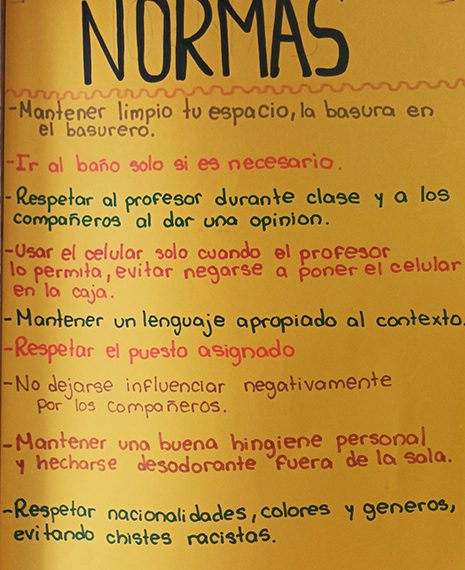 NORMAS
-Mantener limpio tu espacio, la basura en
el basurero.
-Ir al baño solo si es necesario.
-Respetar al profesor durante clase y a los
compañeros al dar una opinion.
-Usar el celular solo cuando el profesor
lo permita, evitar negarse a poner el celular
en la caja.
-Mantener un lenguaje apropiado al contexto.
-Respetar el puesto asignado
-No dejarse influenciar negativamente
por los compañeros.
-Mantener una buena hingiene personal
y hecharse desodorante fuera de la sala.
-Respetar nacionalidades, colores y generos,
evitando chistes racistas.